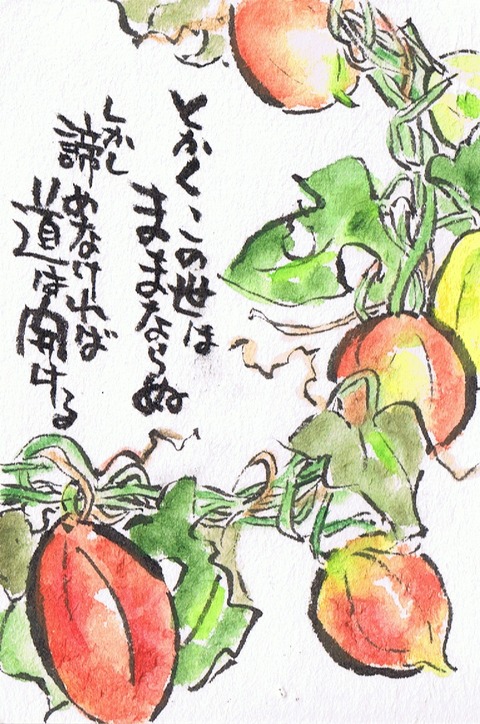 とかくこの世は
ままならぬ
しかし
諦めなければ
道は開ける